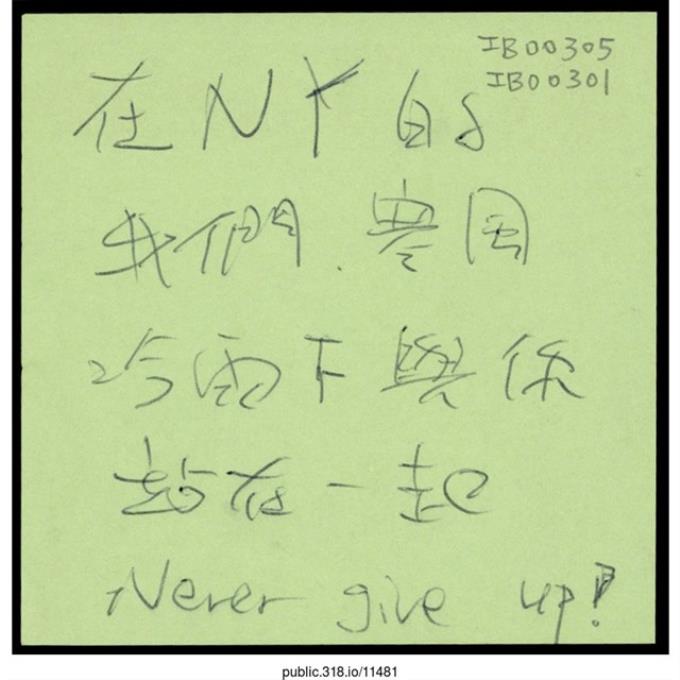 IB00305
IB00301
在NY的
我們.豊風
冷雨下與你
站在一起
Never give up!
public.318.io/11481